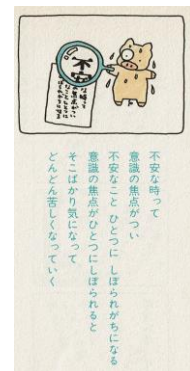 不安
不安な時って
意識の焦点がつい
不安なこと ひとつに しぼられがちになる
意識の焦点がひとつにしぼられると
そこばかり気になって
どんどん苦しくなっていく